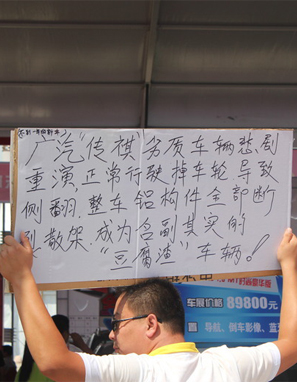 "广汽"传祺劣质车辆悲剧
重演,正常行驶掉车轮,导致
侧翻,整车铝构件全部断
裂散架,成为名副其实的
"豆腐渣"车辆!
车展价格 89800元
导航、倒车影像、蓝